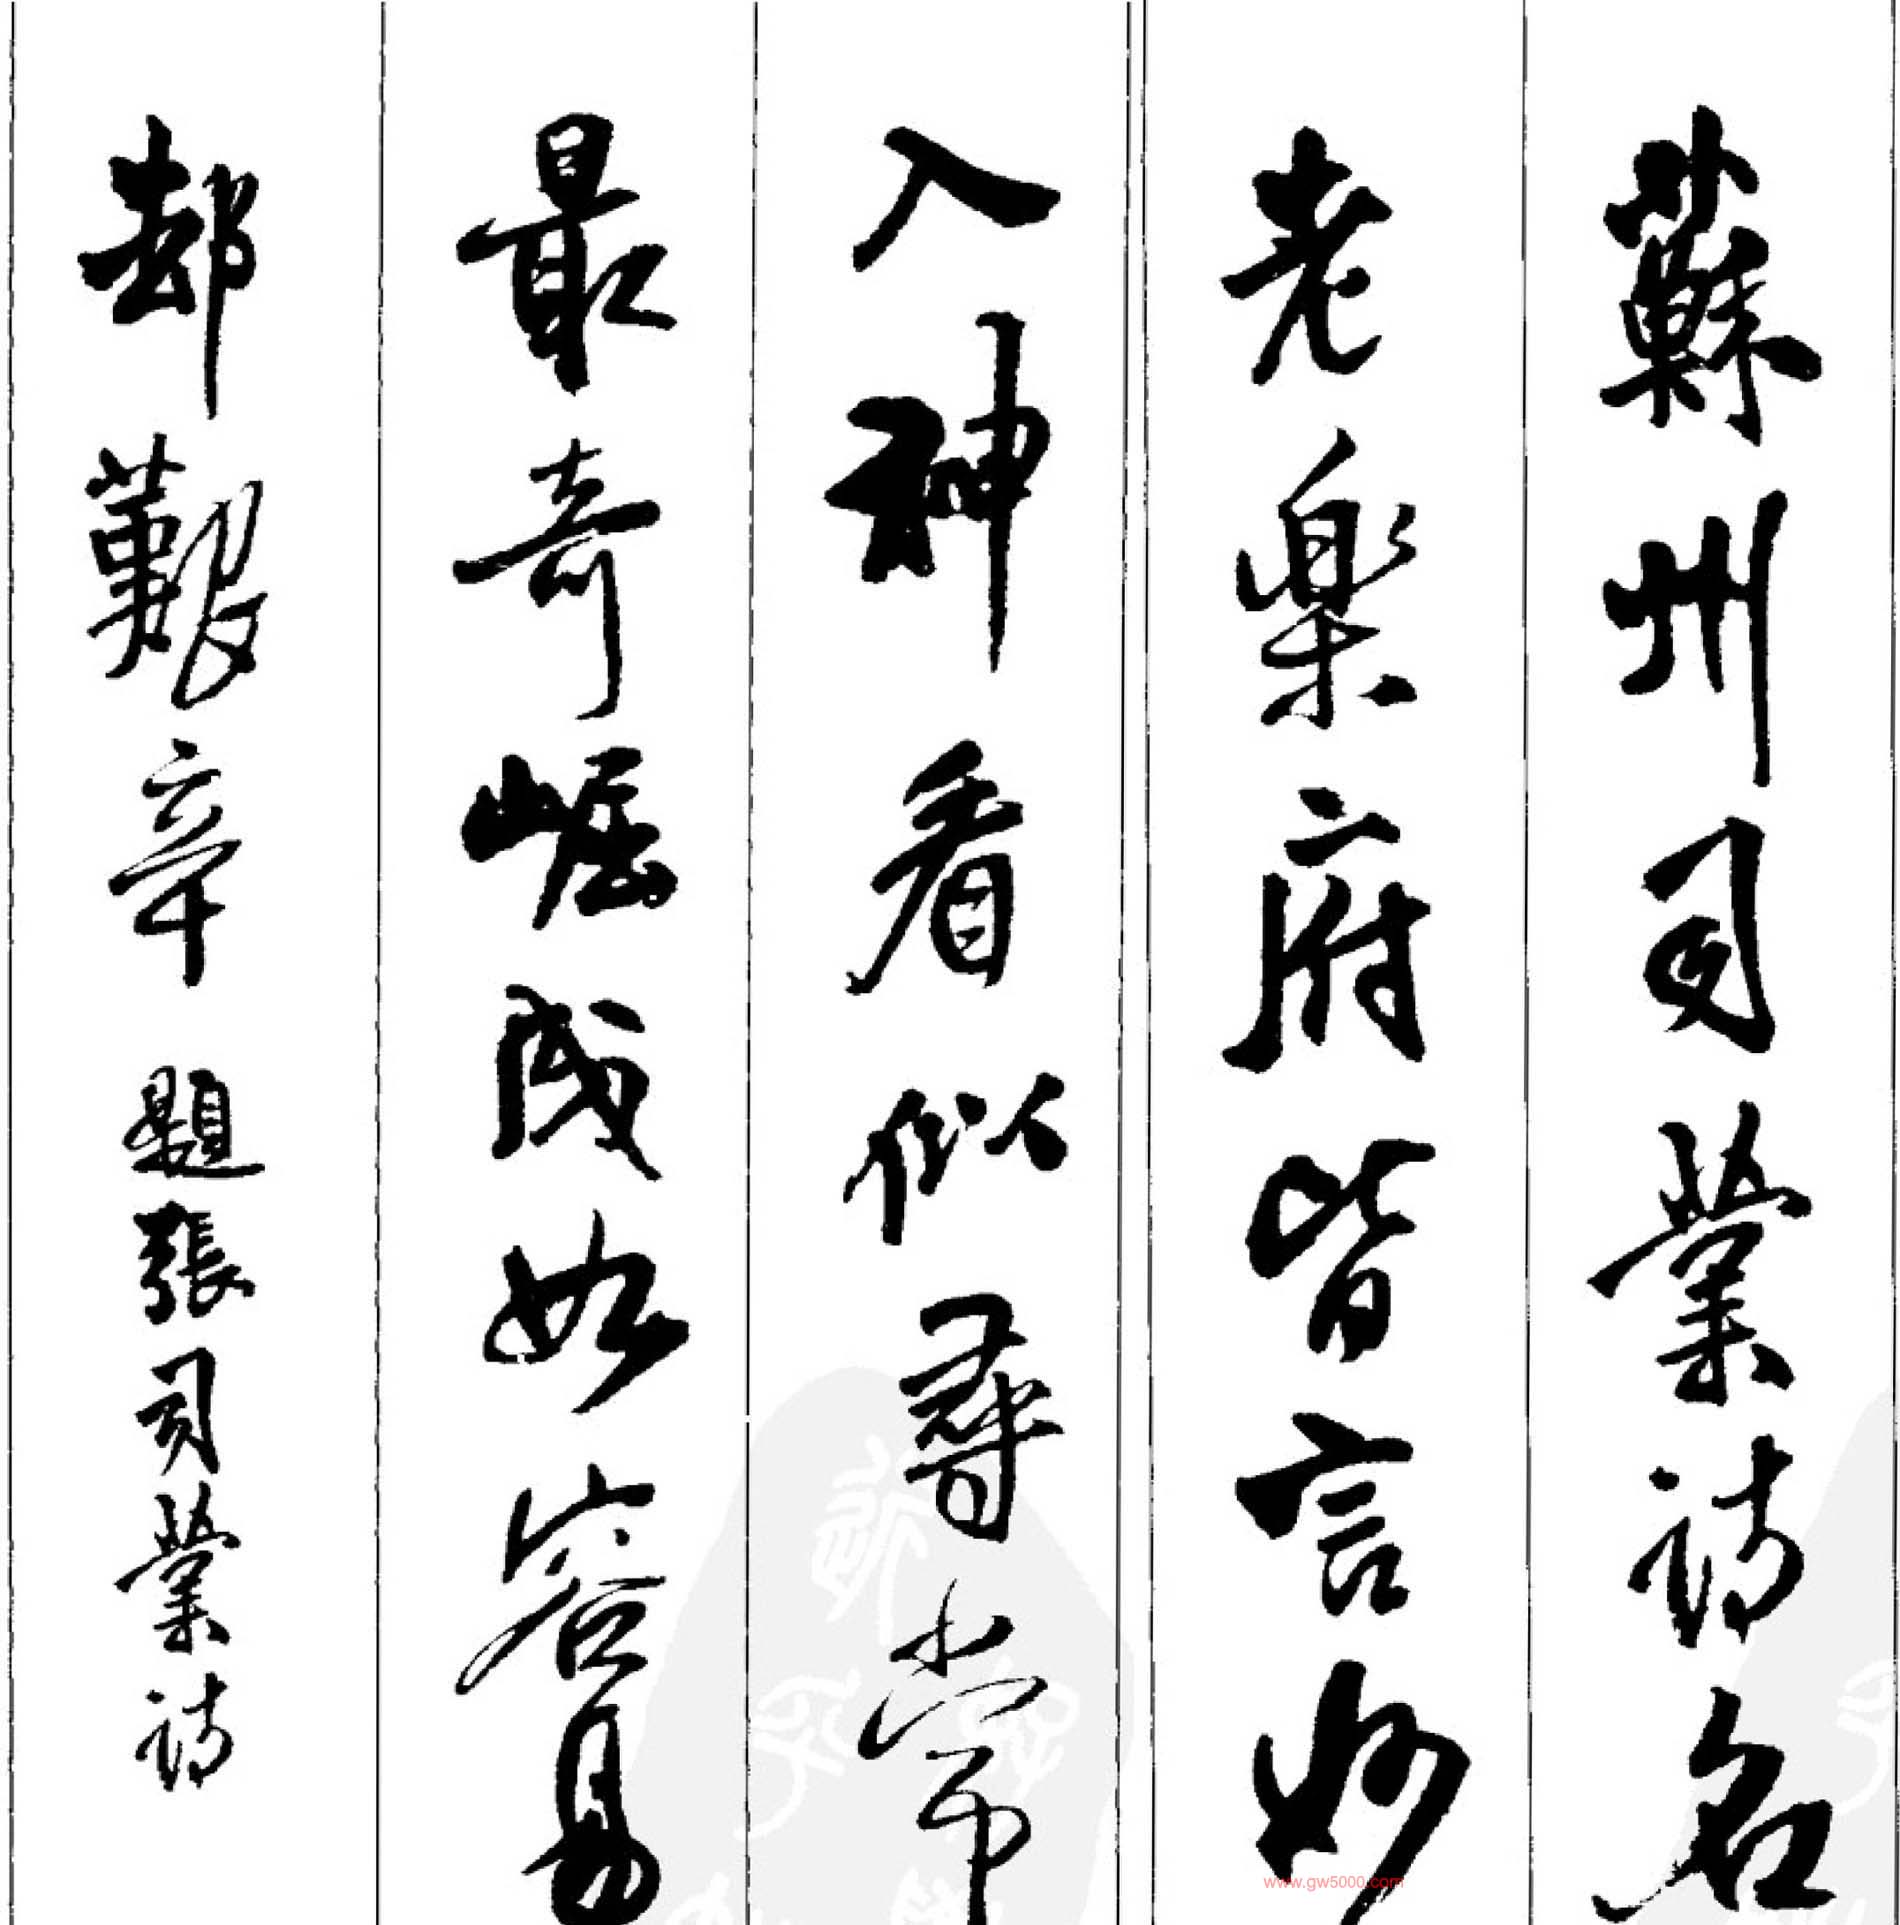 蘇州司業詩名
老樂府皆言妙
入神看似尋常
最奇崛成如容易
却艱辛 題張司業詩
www.gw5000.com